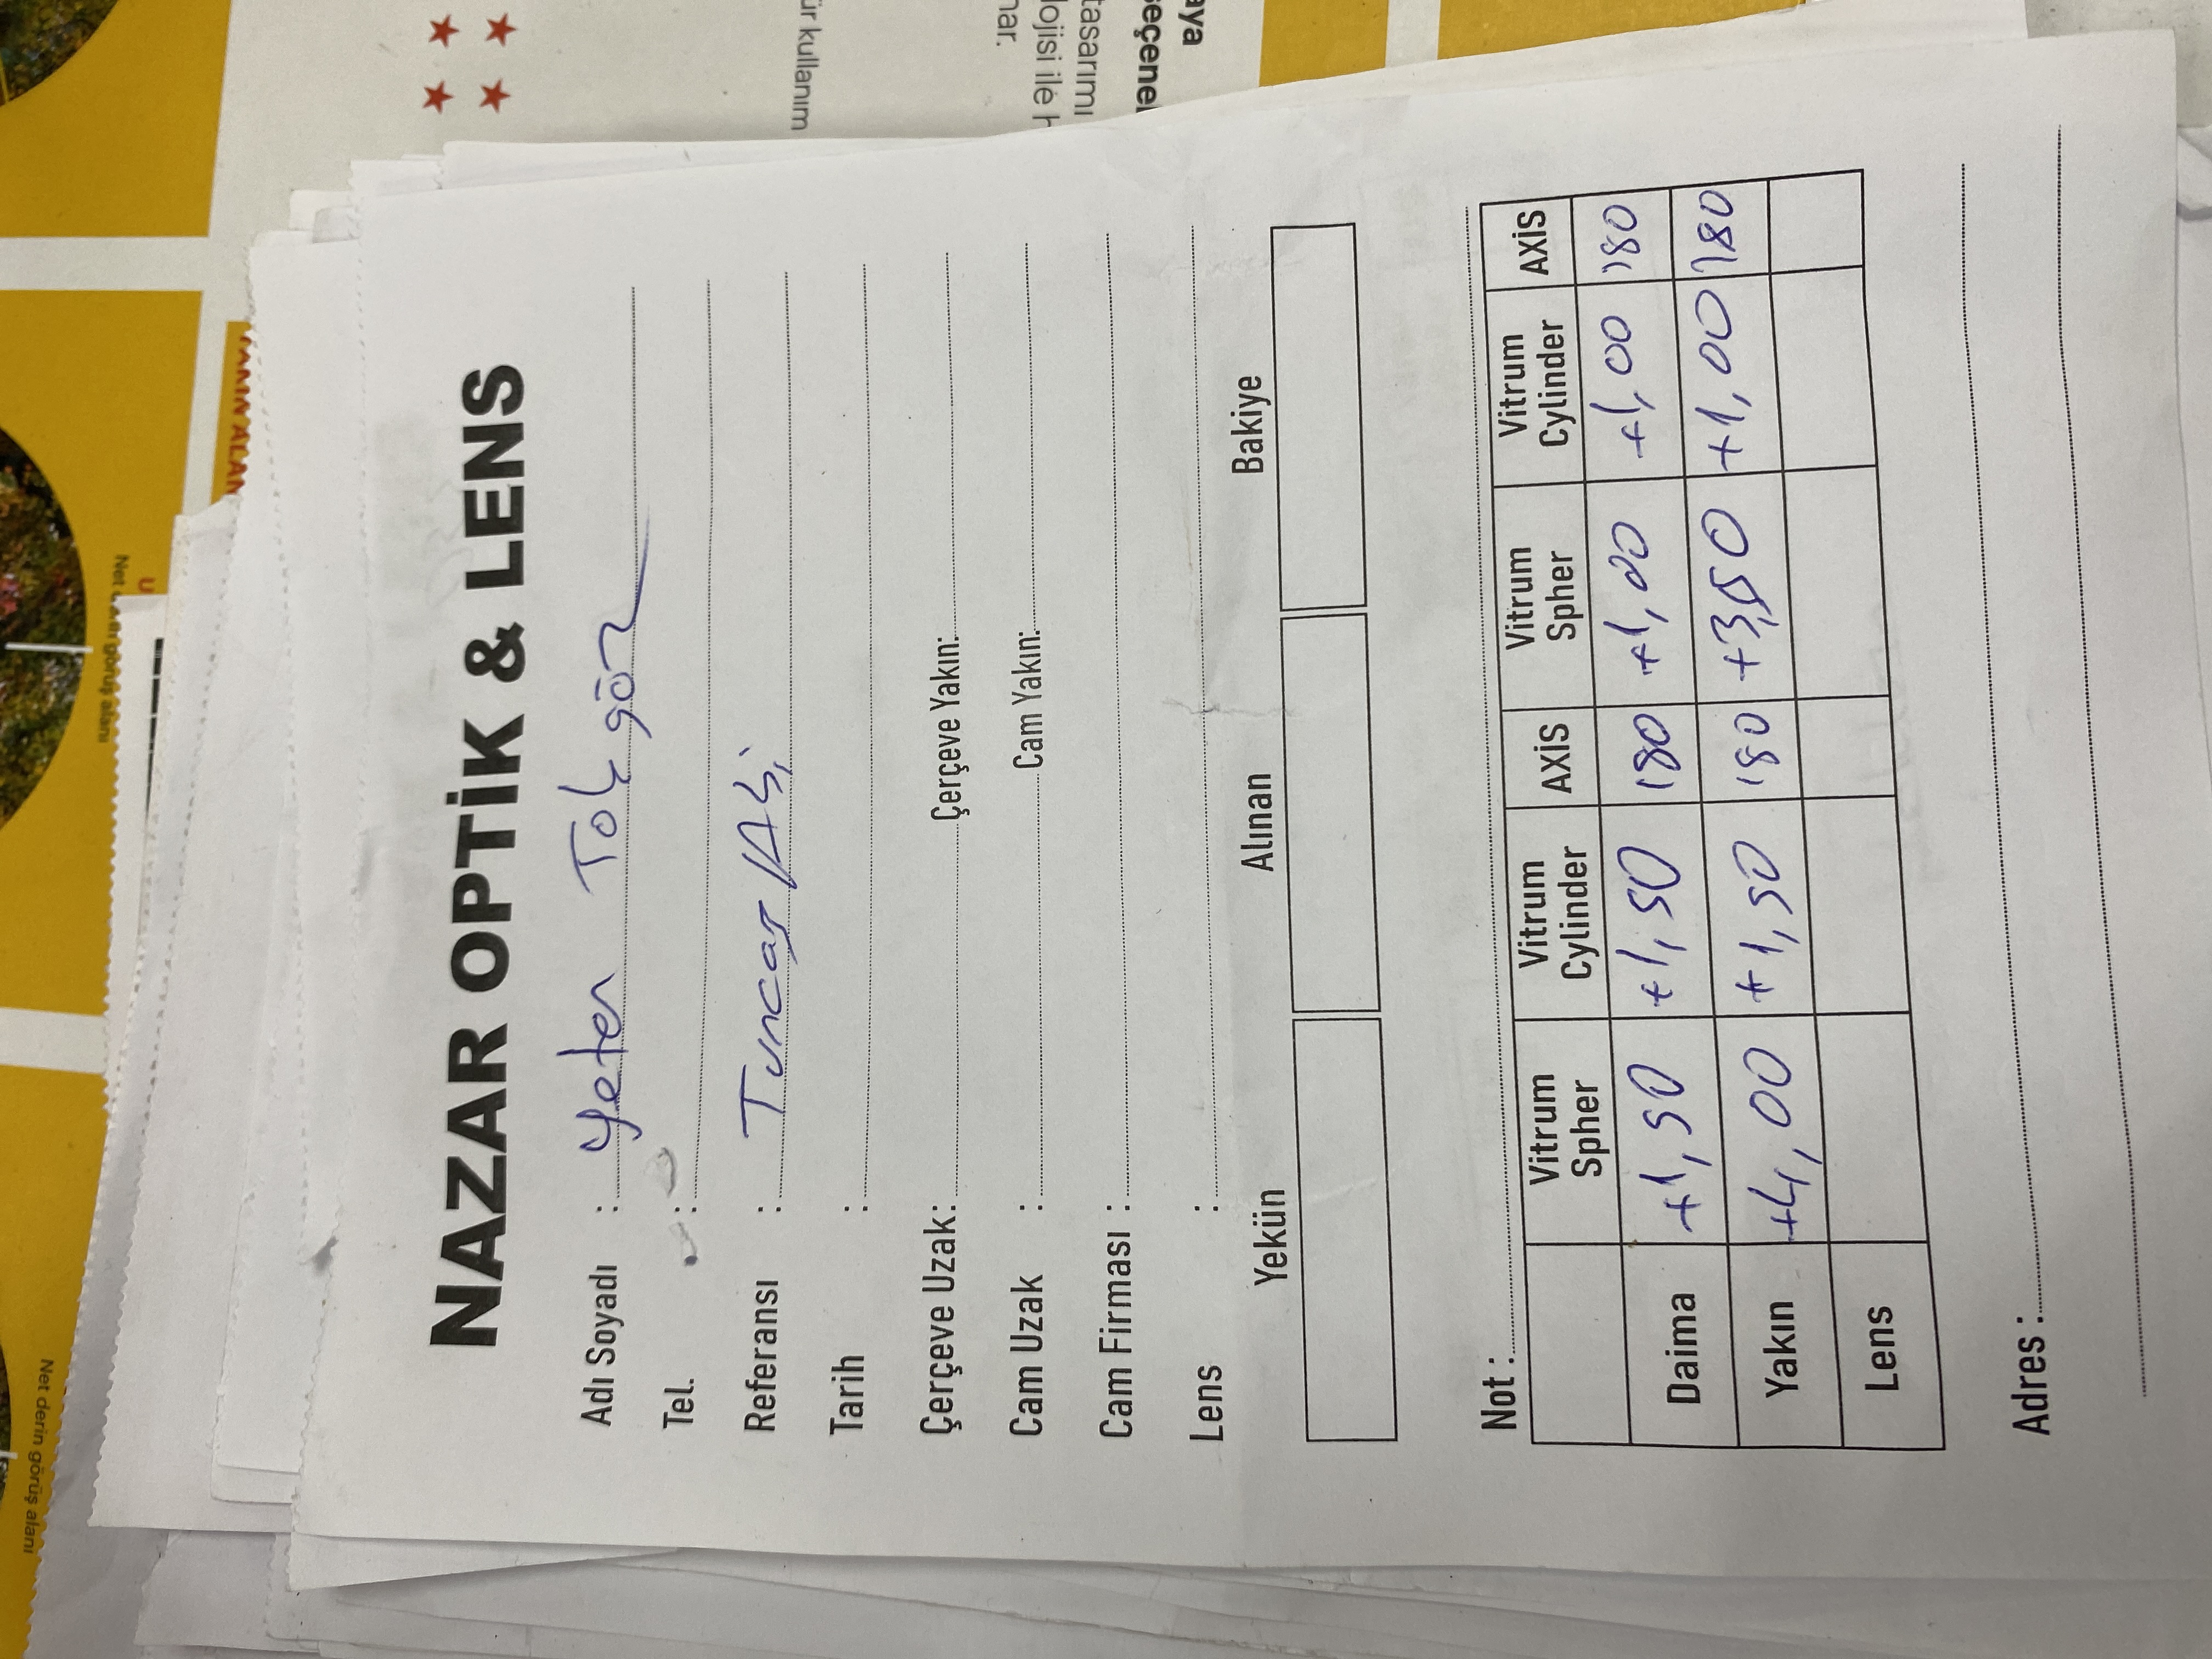 Net derin görüş alanı
Net derin görüş alanı
YAKIN ALAN
NAZAR OPTİK & LENS
Adı Soyadı : Yeter Tokgöz
Tel. :
Referansı : Tuncay Abi
Tarih :
Çerçeve Uzak: Çerçeve Yakın:
Cam Uzak : Cam Yakın:
Cam Firması :
Lens :
Yekün Alınan Bakiye
Not :
Vitrum Spher Vitrum Cylinder AXİS Vitrum Spher Vitrum Cylinder AXİS
Daima +1,50 +1,50 180 +1,00 +1,00 180
Yakın +4,00 +1,50 180 +3,50 +1,00 180
Lens
Adres :
kullanım
ile
tasarımı